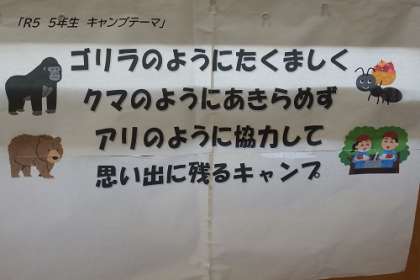 「R5 5年生 キャンプテーマ」
ゴリラのようにたくましく
クマのようにあきらめず
アリのように協力して
思い出に残るキャンプ